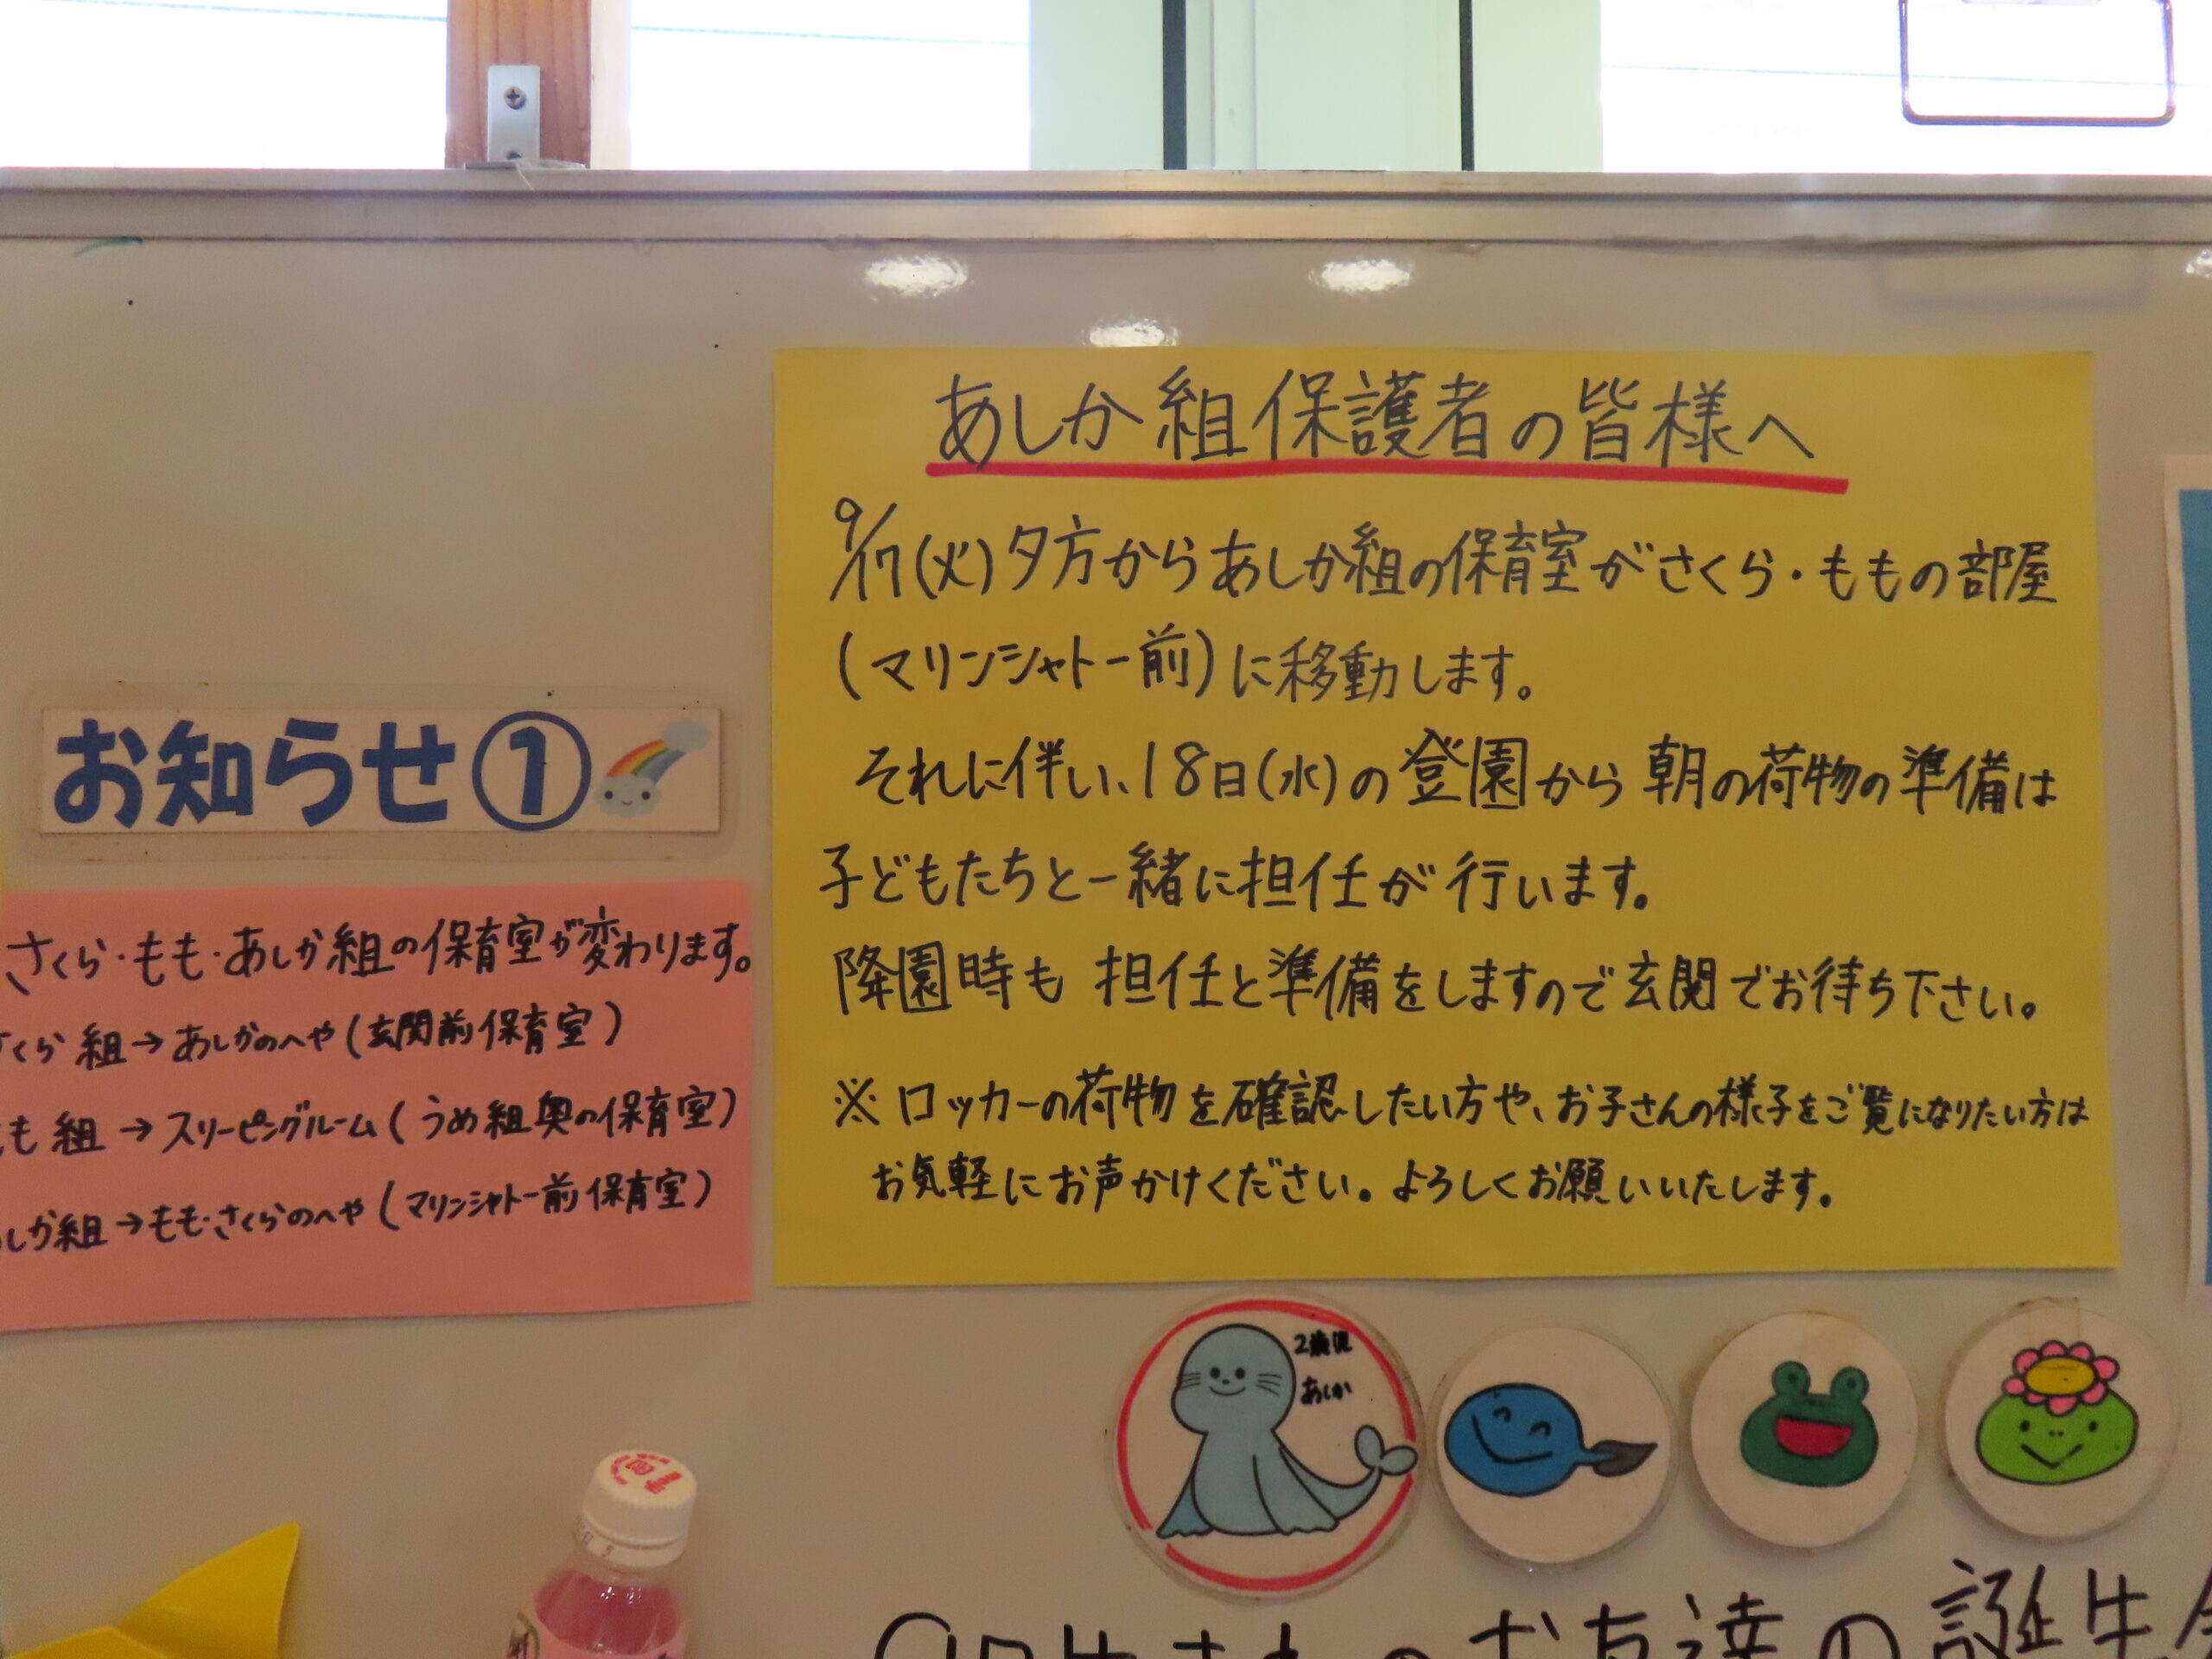 あしか組保護者の皆様へ
9/17(火)夕方からあしか組の保育室がさくら・ももの部屋
(マリンシャトー前)に移動します。
それに伴い、18日(水)の登園から朝の荷物の準備は
子どもたちと一緒に担任が行います。
降園時も担任と準備をしますので玄関でお待ち下さい。
※ロッカーの荷物を確認したい方や、お子さんの様子をご覧になりたい方は
お気軽にお声かけください。よろしくお願いいたします。
お知らせ①
さくら・もも・あしか組の保育室が変わります。
くら組→あしかのへや(玄関前保育室)
も組→スリーピングルーム(うめ組奥の保育室)
しか組→もも・さくらのへや(マリンシャトー前保育室)
2歳児
あしか
お友達の誕生